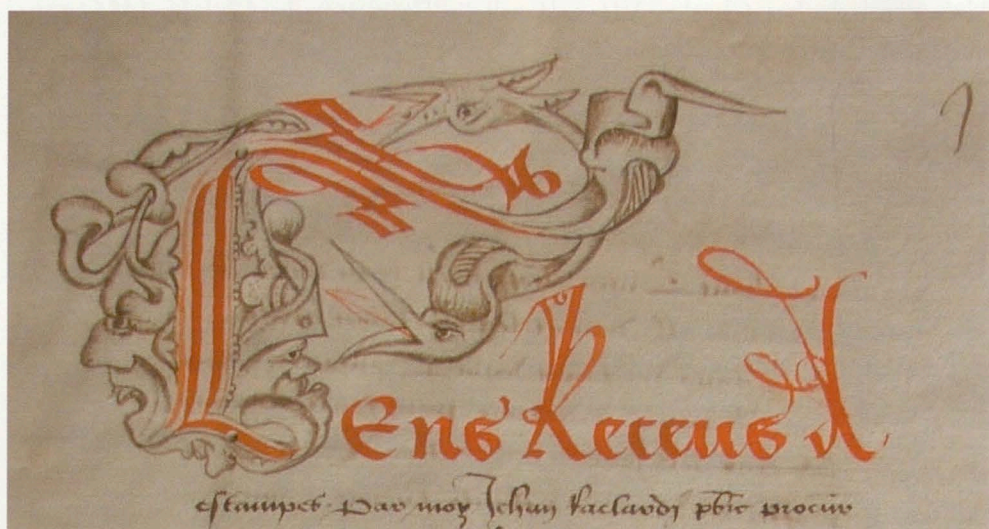 Cens Receus A
estampes. Par moy Jehan paclardy pbre procur